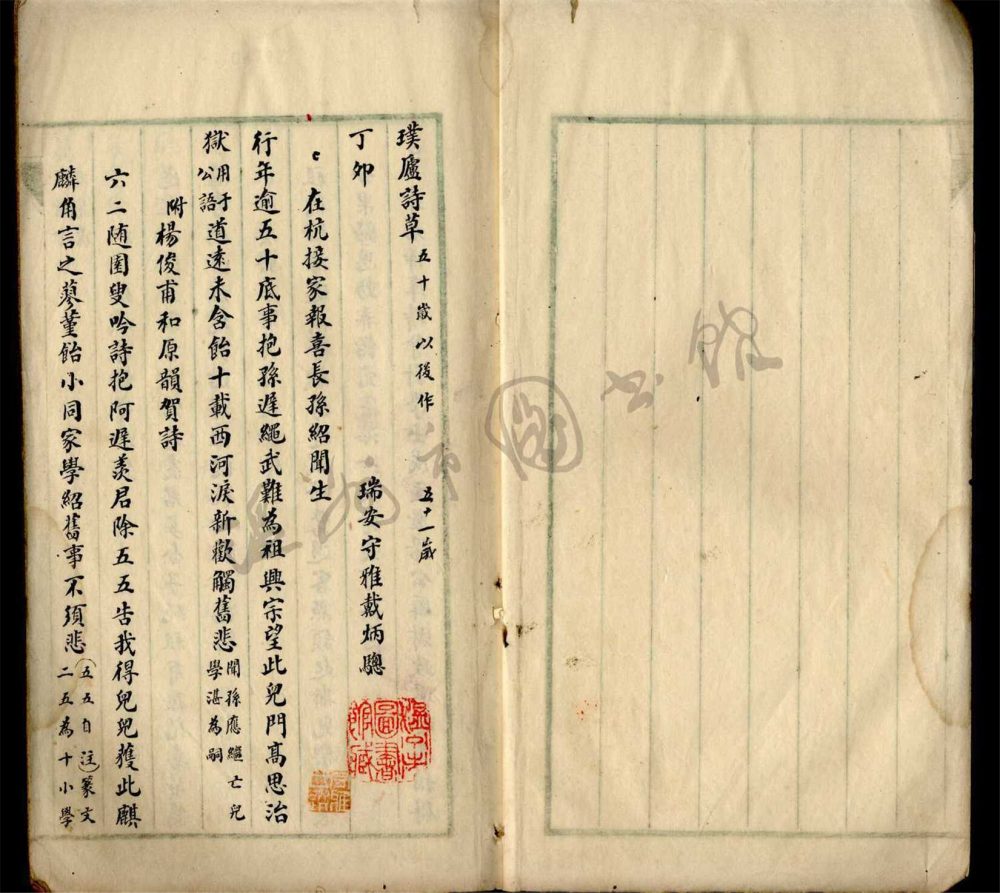 璞廬詩草 五十歲以後作 五十一歲
丁卯 瑞安守雅戴炳驄
在杭接家報喜長孫紹聞生
行年逾五十底事抱孫遲繩武難為祖興宗望此兒門高思治
獄用于公語道遠未含飴十載西河淚新歡觸舊悲聞孫應繼亡兒學湛為嗣
附楊俊甫和原韻賀詩
六二隨園叟吟詩抱阿遲羨君除五五告我得兒兒獲此麒
麟角言之蔘薑飴小同家學紹舊事不須悲五五自注篆文二五為十小學
圖書館
溫州市圖書館藏